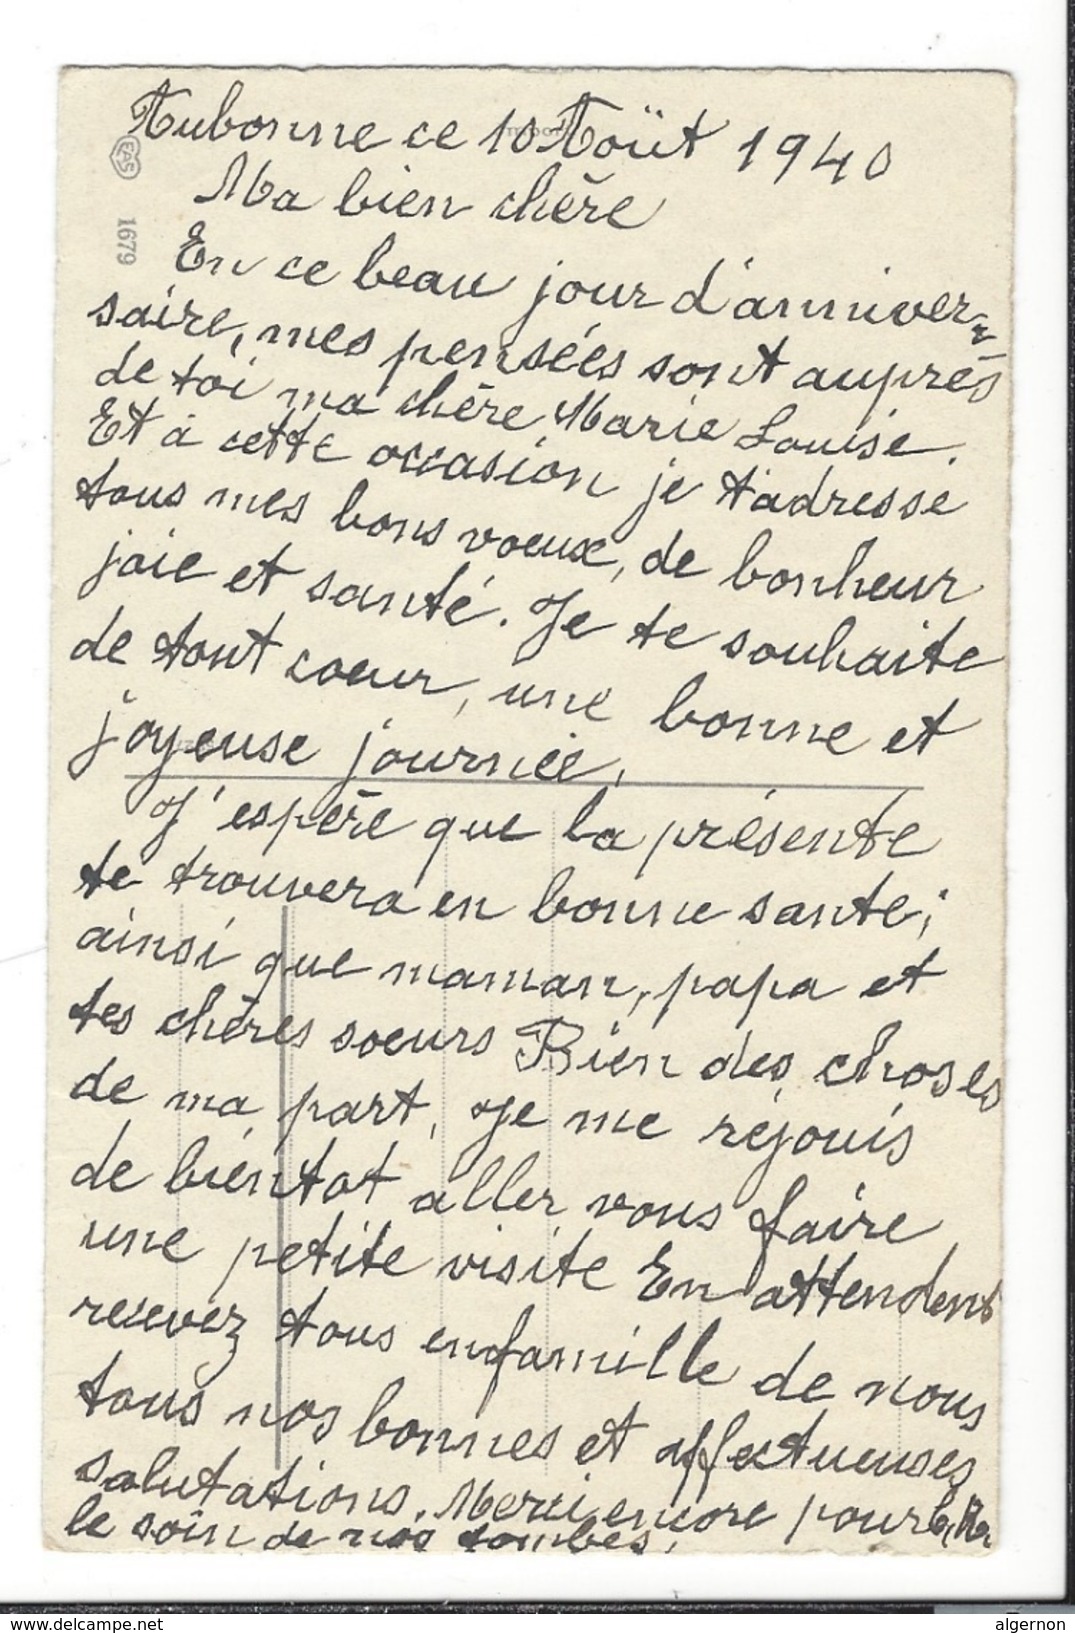 Aubonne ce 10 Aoüt 1940
EAS
1679
Ma bien chère
En ce beau jour d'anniver=
saire, mes pensées sont auprès
de toi ma chère Marie Louise.
Et à cette occasion je t'adresse
tous mes bons voeux, de bonheur
joie et santé. Je te souhaite
de tout coeur, une bonne et
joyeuse journée,
J'espère que la présente
te trouvera en bonne sante;
ainsi que maman, papa et
tes chères soeurs Bien des choses
de ma part, Je me réjouis
de bientot aller vous faire
une petite visite En attendent
recevez tous enfamille de nous
tous nos bonnes et affectueuses
salutations. Merci encore pour
le soin de nos tombes.
www.delcampe.net
algernon